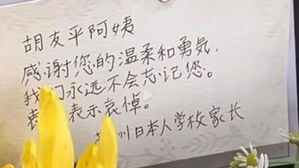 胡友平阿姨
感谢您的温柔和勇气,
我们永远不会忘记您。
表示哀悼。
州日本人学校家长